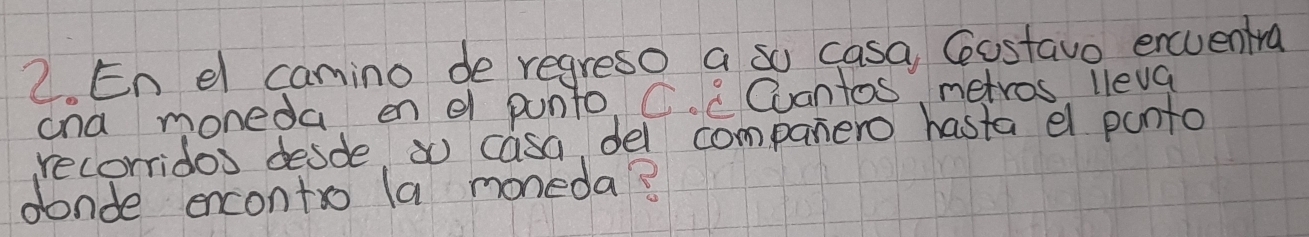 2. En el camino de regreso a su casa, Gustavo encuentra
una moneda en el punto C. ¿ Cuantos metros lleva
recorridos desde su casa del compañero hasta el punto
donde encontro la moneda?